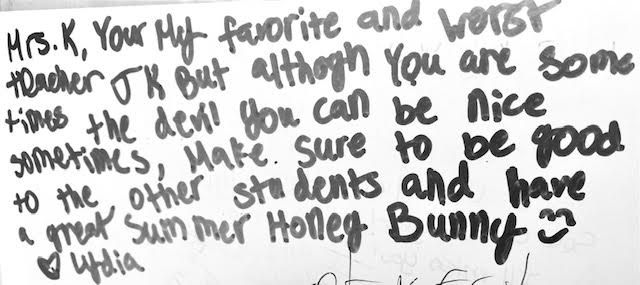 Mrs. K, Your My favorite and worst
teacher JK But althogh You are some
times the devil you can be nice
sometimes, Make sure to be good
to the other students and have
a great summer Honey Bunny
Lydia